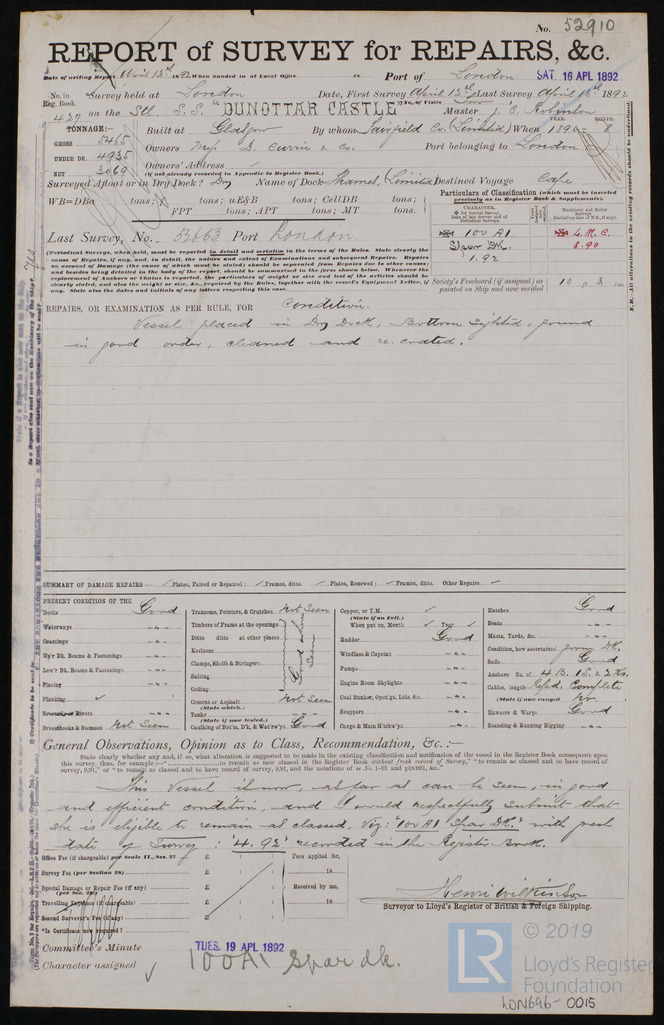 No. 52910
REPORT of SURVEY for REPAIRS, &c.
Date of writing Report April 13th 1892 When handed in at Local Office 18 Port of London SAT. 16 APL 1892
No. in Reg. Book. Survey held at London Date, First Survey April 12th Last Survey April 13th 1892
427 on the Stl. S.S. "DUNOTTAR CASTLE" Master J. C. Robinson
TONNAGE:— Built at Glasgow By whom Fairfield Co. (Limited) When 1890 - 8
GROSS 5465 Owners Messrs D. Currie & Co. Port belonging to London
UNDER DK. 4935 Owners' Address
NET 3069 (if not already recorded in Appendix to Register Book.)
Surveyed Afloat or in Dry Dock? Dry Name of Dock Thames (Limited) Destined Voyage Cape
WB=DBa tons; uE&B tons; CellDB tons;
FPT tons; APT tons; MT tons.
Particulars of Classification (which must be inserted precisely as in Register Book & Supplements).
100 A1 L.M.C.
Spar Dk. 8.90
1.92
Last Survey, No. 53663 Port London
(Periodical Surveys, when held, must be reported in detail and seriatim in the terms of the Rules. State clearly the
cause of Repairs, if any, and, in detail, the nature and extent of Examinations and subsequent Repairs. Repairs
on account of Damage (the cause of which must be stated) should be separated from Repairs due to other causes;
and besides being detailed in the body of the report, should be summarised in the form shown below. Whenever the
replacement of Anchors or Chains is reported, the particulars of weight or size and test of the articles should be
clearly stated, and also the weight or size, &c., required by the Rules, together with the vessel's Equipment Letter, if
any. State also the dates and initials of any letters respecting this case.
Society's Freeboard (if assigned) as painted on Ship and now verified 10 3
REPAIRS, OR EXAMINATION AS PER RULE, FOR Condition.
Vessel placed in Dry Dock, Bottom Sighted, found
in good order, cleaned and re.coated.
SUMMARY OF DAMAGE REPAIRS:— Plates, Faired or Repaired; Frames, ditto. Plates, Renewed; Frames, ditto. Other Repairs.
PRESENT CONDITION OF THE
Decks Good
Waterways -"-
Coamings -"-
Up'r Dk. Beams & Fastenings -"-
Low'r Dk. Beams & Fastenings -"-
Plating -"-
Planking
Rivets -"-
Breasthooks & Stemson Not Seen
Transoms, Pointers, & Crutches Not Seen
Timbers of Frame at the openings
Ditto ditto at other places
Keelsons
Clamps, Shelfs & Stringers
Salting
Ceiling
Good where seen
Cement or Asphalt Not Seen
(State which.)
Tanks
(State if now tested.)
Caulking of Bot'm, D'k, & Wat'rw'ys Good
Copper, or Y.M.
(State if on Felt.)
When put on, Month Year
Rudder Good
Windlass & Capstan -"-
Pumps -"-
Engine Room Skylights -"-
Coal Bunker, Open'gs, Lids, &c. -"-
Scuppers -"-
Cargo & Main H'tchw'ys -"-
Hatches Good
Boats -"-
Masts, Yards, &c. -"-
Condition, how ascertained from Dk.
Sails Good
Anchors No. of 4 B. 1 S. & 2 Ks.
Cables, length Complete
(State if now ranged) No
Hawsers & Warps Good
Standing & Running Rigging -"-
General Observations, Opinion as to Class, Recommendation, &c.:—
State clearly whether any, and if so, what alteration is suggested to be made in the existing classification and notification of the vessel in the Register Book consequent upon
This Vessel is now, as far as can be seen, in good
and efficient condition, and would respectfully submit that
she is eligible to remain as classed, Viz: "100 A1 Spar Dk." with fresh
date of Survey: "4.92" recorded in the Register Book.
Office Fee (if chargeable) per Scale II., Sec. 27 £ Fees applied for,
Survey Fee (per Section 28) £ 18
Special Damage or Repair Fee (if any) £ Received by me,
Travelling Expenses (if chargeable) £ 18
Second Surveyor's Fee (if any) £
*Is Certificate now required?
Henri Wilkinson
Surveyor to Lloyd's Register of British & Foreign Shipping.
Committee's Minute TUES. 19 APL 1892
Character assigned 100A1 Spar dk.
© 2019
LR Lloyd's Register Foundation
LON696-0015